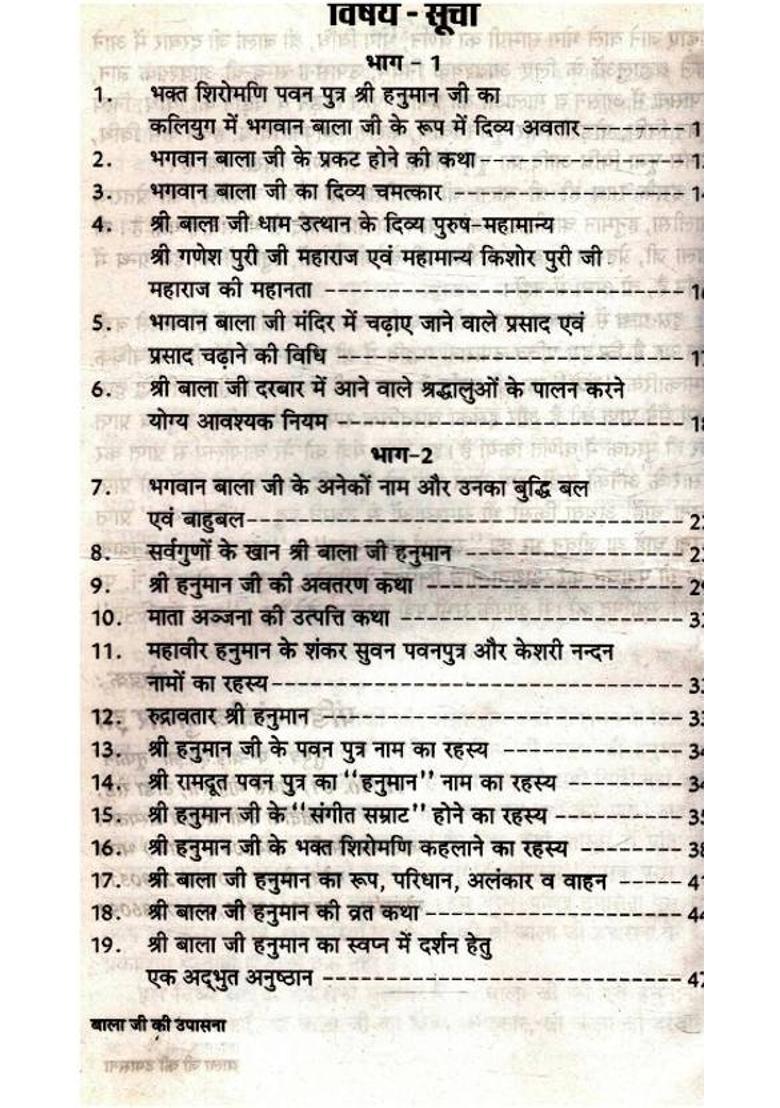 विषय - सूची
भाग - 1
1. भक्त शिरोमणि पवन पुत्र श्री हनुमान जी का
कलियुग में भगवान बाला जी के रूप में दिव्य अवतार -------- 1
2. भगवान बाला जी के प्रकट होने की कथा ----------------- 1
3. भगवान बाला जी का दिव्य चमत्कार -------------------- 14
4. श्री बाला जी धाम उत्थान के दिव्य पुरुष-महामान्य
श्री गणेश पुरी जी महाराज एवं महामान्य किशोर पुरी जी
महाराज की महानता ------------------------------ 16
5. भगवान बाला जी मंदिर में चढ़ाए जाने वाले प्रसाद एवं
प्रसाद चढ़ाने की विधि ----------------------------- 17
6. श्री बाला जी दरबार में आने वाले श्रद्धालुओं के पालन करने
योग्य आवश्यक नियम ---------------------------- 18
भाग-2
7. भगवान बाला जी के अनेकों नाम और उनका बुद्धि बल
एवं बाहुबल ----------------------------------- 2
8. सर्वगुणों के खान श्री बाला जी हनुमान ------------------ 2
9. श्री हनुमान जी की अवतरण कथा --------------------- 29
10. माता अञ्जना की उत्पत्ति कथा ----------------------- 3
11. महावीर हनुमान के शंकर सुवन पवनपुत्र और केशरी नन्दन
नामों का रहस्य --------------------------------- 3
12. रुद्रावतार श्री हनुमान ----------------------------- 3
13. श्री हनुमान जी के पवन पुत्र नाम का रहस्य -------------- 34
14. श्री रामदूत पवन पुत्र का "हनुमान" नाम का रहस्य --------- 34
15. श्री हनुमान जी के "संगीत सम्राट" होने का रहस्य ---------- 35
16. श्री हनुमान जी के भक्त शिरोमणि कहलाने का रहस्य -------- 38
17. श्री बाला जी हनुमान का रूप, परिधान, अलंकार व वाहन ----- 41
18. श्री बाला जी हनुमान की व्रत कथा --------------------- 44
19. श्री बाला जी हनुमान का स्वप्न में दर्शन हेतु
एक अद्भुत अनुष्ठान ------------------------------ 47
बाला जी की उपासना